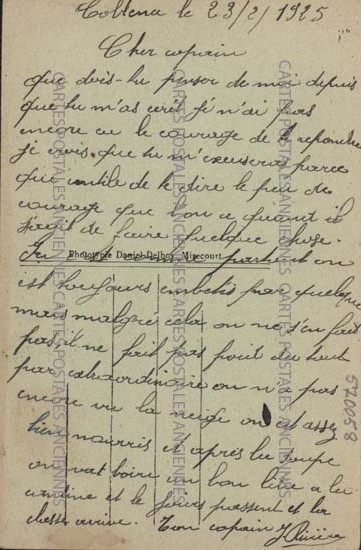 Coblence le 23/2/1925
Cher copain
que dois-tu penser de moi depuis
que tu m'as écrit je n'ai pas
encore eu le courage de te repondre
je crois que tu m'excusera parce
que inutile de te dire le peu de
courage que l'on a quand il
s'agit de faire quelque chose.
Phototypie Daniel-Delboy, Mirecourt
partout on
est toujours embetés par quelque
mais malgré cela on ne s'en fait
pas, il ne fait pas froid du tout
par extraordinaire on n'a pas
encore vu la neige on est assez
bien nourris et après la soupe
on vat boire un bon litre a la
cantine et le jours passent et la
classe arrive. Ton copain
CARTES POSTALES ANCIENNES
CARTES POSTALES ANCIENNES
CARTES POSTALES ANCIENNES
570058